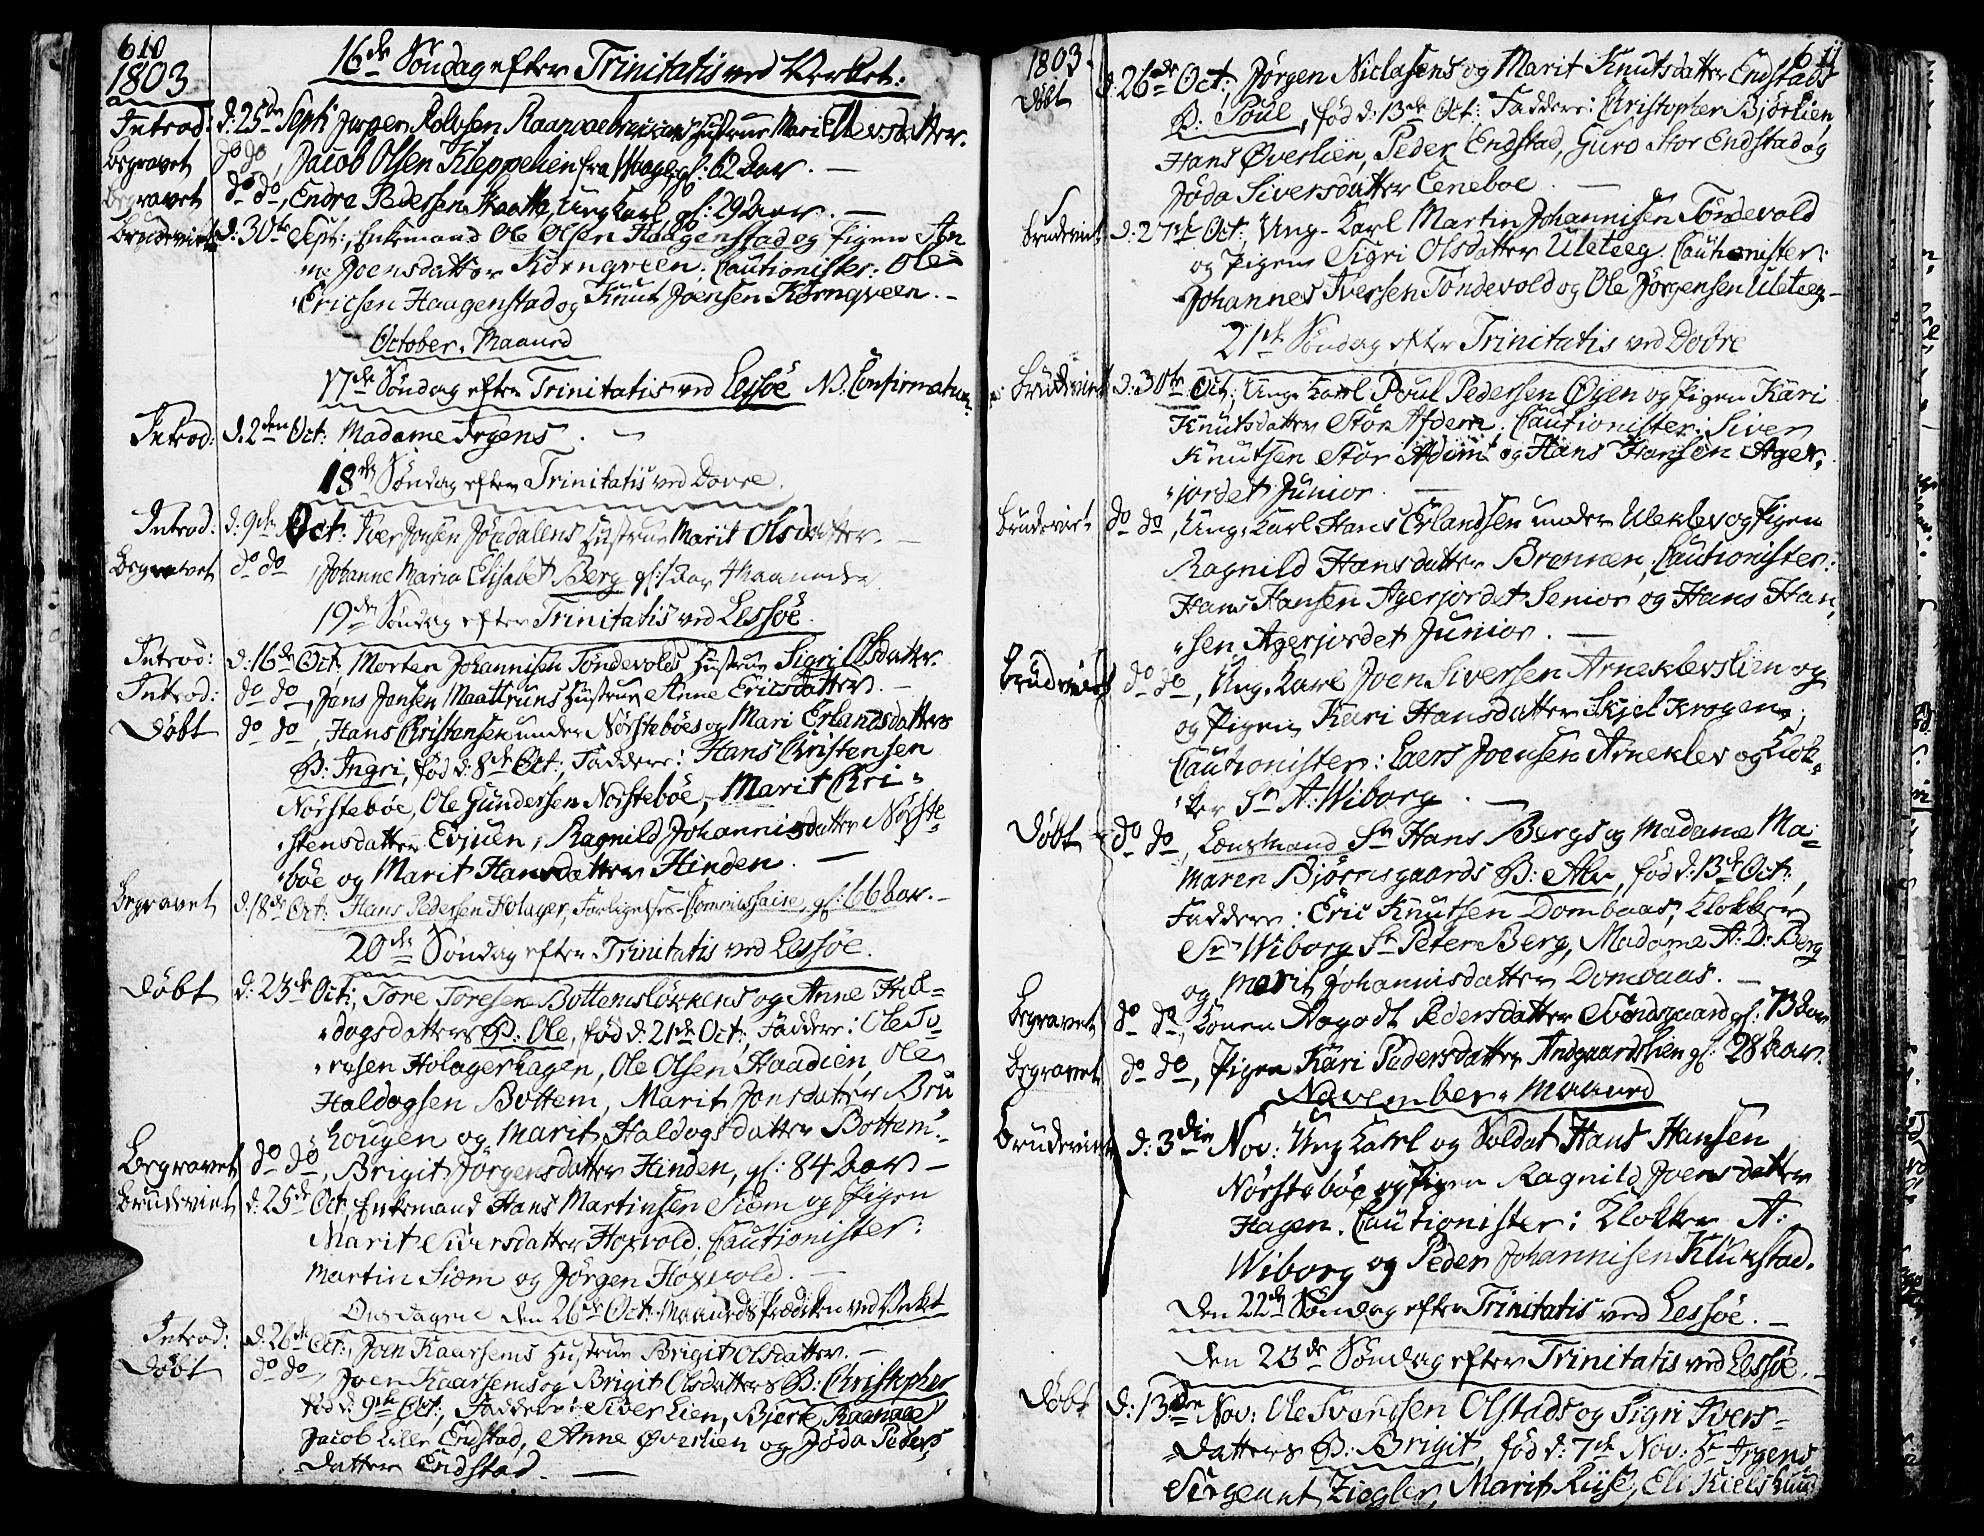 610
1803
16de Søndag efter Trinitatis ved Verket.
Introd: d: 25de Sept: Jesper Rolvsen Hustrue Marit
Begravet do do, Jacob Olsen Kleppelien fra Waage, gl: 62 Aar. —
Begravet do do, Endre Pedersen Skotte, Ung Karl, gl: 29 Aar. —
Brudeviet d: 30te Sept:, Enkemand Ole Olsen Haagenstad og Pigen An
ne Joensdatter Kørnqveen. Cautionister: Ole
Ericsen Haagenstad og Knut Joensen Kørnqveen. —
October-Maaned
17de Søndag efter Trinitatis ved Lessøe NB: Confirmation
Introd: d: 2den Oct: Madame Irgens. —
18de Søndag efter Trinitatis ved Dovre.
Introd: d: 9de Oct: Iver Jonsen Jøndalens Hustrue Marit Olsdatter. —
Begravet do do Johanne Maria Elisabet Berg gl: 1 Aar 4 Maaneder
19de Søndag efter Trinitatis ved Lessøe.
Introd: d: 16de Oct:, Morten Johannisen Tøndevolds Hustrue Sigri Olsdatter.
Introd: do do, Jens Jensen Maattruns Hustrue Anne Ericsdatter. —
Døbt do do, Hans Christensen under Nørstebøes og Mari Erlandsdatters
B: Ingri, fød d: 8de Oct:, Faddere: Hans Christensen
Nørstebøe, Ole Gundersen Nørstebøe, Marit Chri-
stensdatter Evjuen, Ragnild Johannisdatter Nørste-
bøe og Marit Hansdatter Hinden. —
Begravet d: 18de Oct: Hans Pedersen Holager, Forligelses-Commissaire, gl: 66 Aar. —
20de Søndag efter Trinitatis ved Lessøe.
Døbt d: 23de Oct:, Tore Toresen Bottemsløkkens og Anne Hal-
dogsdatters B: Ole, fød d: 21de Oct:, Faddere: Ole To-
resen Holagerhagen, Ole Olsen Haadien, Ole
Haldogsen Bottem, Marit Jonsdatter Bru
Lougen og Marit Haldogsdatter Bottem. —
Begravet do do, Brigit Jørgensdatter Hinden, gl: 84 Aar —
Brudeviet d: 25de Oct, Enkemand Hans Martinsen Siem og Pigen
Marit Siversdatter Hoxvold. Cautionister:
Martin Siem og Jørgen Hoxvold. —
Onsdagen den 26de Oct: Maaneds Prædiken ved Verket
Introd: d: 26de Oct:, Joen Kaarsems Hustrue Brigit Olsdatter. —
Døbt do do, Joen Kaarsems og Brigit Olsdatters B: Christopher
fød d: 9de Oct:, Faddere: Siver Lien, Bjerte Raanaae
Jacob Lille Endstad, Anne Øverlien og Jøda Peders-
datter Endstad. —
1803.
611
Døbt d: 26de Oct:, Jørgen Niclasens og Marit Knutsdatter Endstads
B: Poul, fød d: 13de Oct: Faddere: Christopher Bjørlien,
Hans Øverlien, Peder Endstad, Guro Stor Endstad og
Jøda Siversdatter Eeneboe. —
Brudeviet d: 27de Oct:, Ung-Karl Martin Johannisen Tøndevold
og Pigen Sigri Olsdatter Uleteeg. Cautionister:
Johannes Iversen Tøndevold og Ole Jørgensen Uleteeg. —
21de Søndag efter Trinitatis ved Dovre
Brudeviet d: 30te Oct:, Ung-Karl Poul Pedersen Øyen og Pigen Kari
Knutsdatter Stor Afdem. Cautionister: Siver
Knutsen Stor Afdem og Hans Hansen Ager-
jordet Junior. —
Brudeviet do do, Ung-Karl Hans Erlandsen under Uleklev og Pigen
Ragnild Hansdatter Brennen, Cautionister:
Hans Hansen Agerjordet Senior og Hans Han-
sen Agerjordet Junior. —
Brudeviet do do, Ung-Karl Joen Siversen Arneklevslien og
og Pigen Kari Hansdatter Skjelkrogen,
Cautionister: Laers Joensen Arneklev og Klok-
ker Sr A: Wiborg. —
Døbt do do, Lensmand Sr Hans Bergs og Madame Ma-
maren Bjørnsgaards B: , fød d: 13de Oct:,
Faddere: Eric Knutsen Dombaas, Klokker
Sr Wiborg, Sr Peter Berg, Madame A: D: Berg
og Marit Johannisdatter Dombaas. —
Begravet do do, Konen Aagodt Pedersdatter gl: 73 Aar
Begravet do do, Pigen Kari Pedersdatter Andgaardslien gl: 28 Aar.
November-Maaned
Brudeviet d: 3die Nov: Ung Karl og Soldat Hans Hansen
Nørstebøe og Pigen Ragnild Joensdatter
Hagen. Cautionister: Klokker A:
Wiborg og Peder Johannisen Klukstad.
Den 22de Søndag efter Trinitatis ved Lessøe. —
Den 23de Søndag efter Trinitatis ved Lessøe. —
Døbt d: 13de Nov: Ole Svendsen Olstads og Sigri Ivers-
datters B: Brigit, fød d: 7de Nov: Hr Irgens
Sergeant Ziegler, Marit Riise, Eli